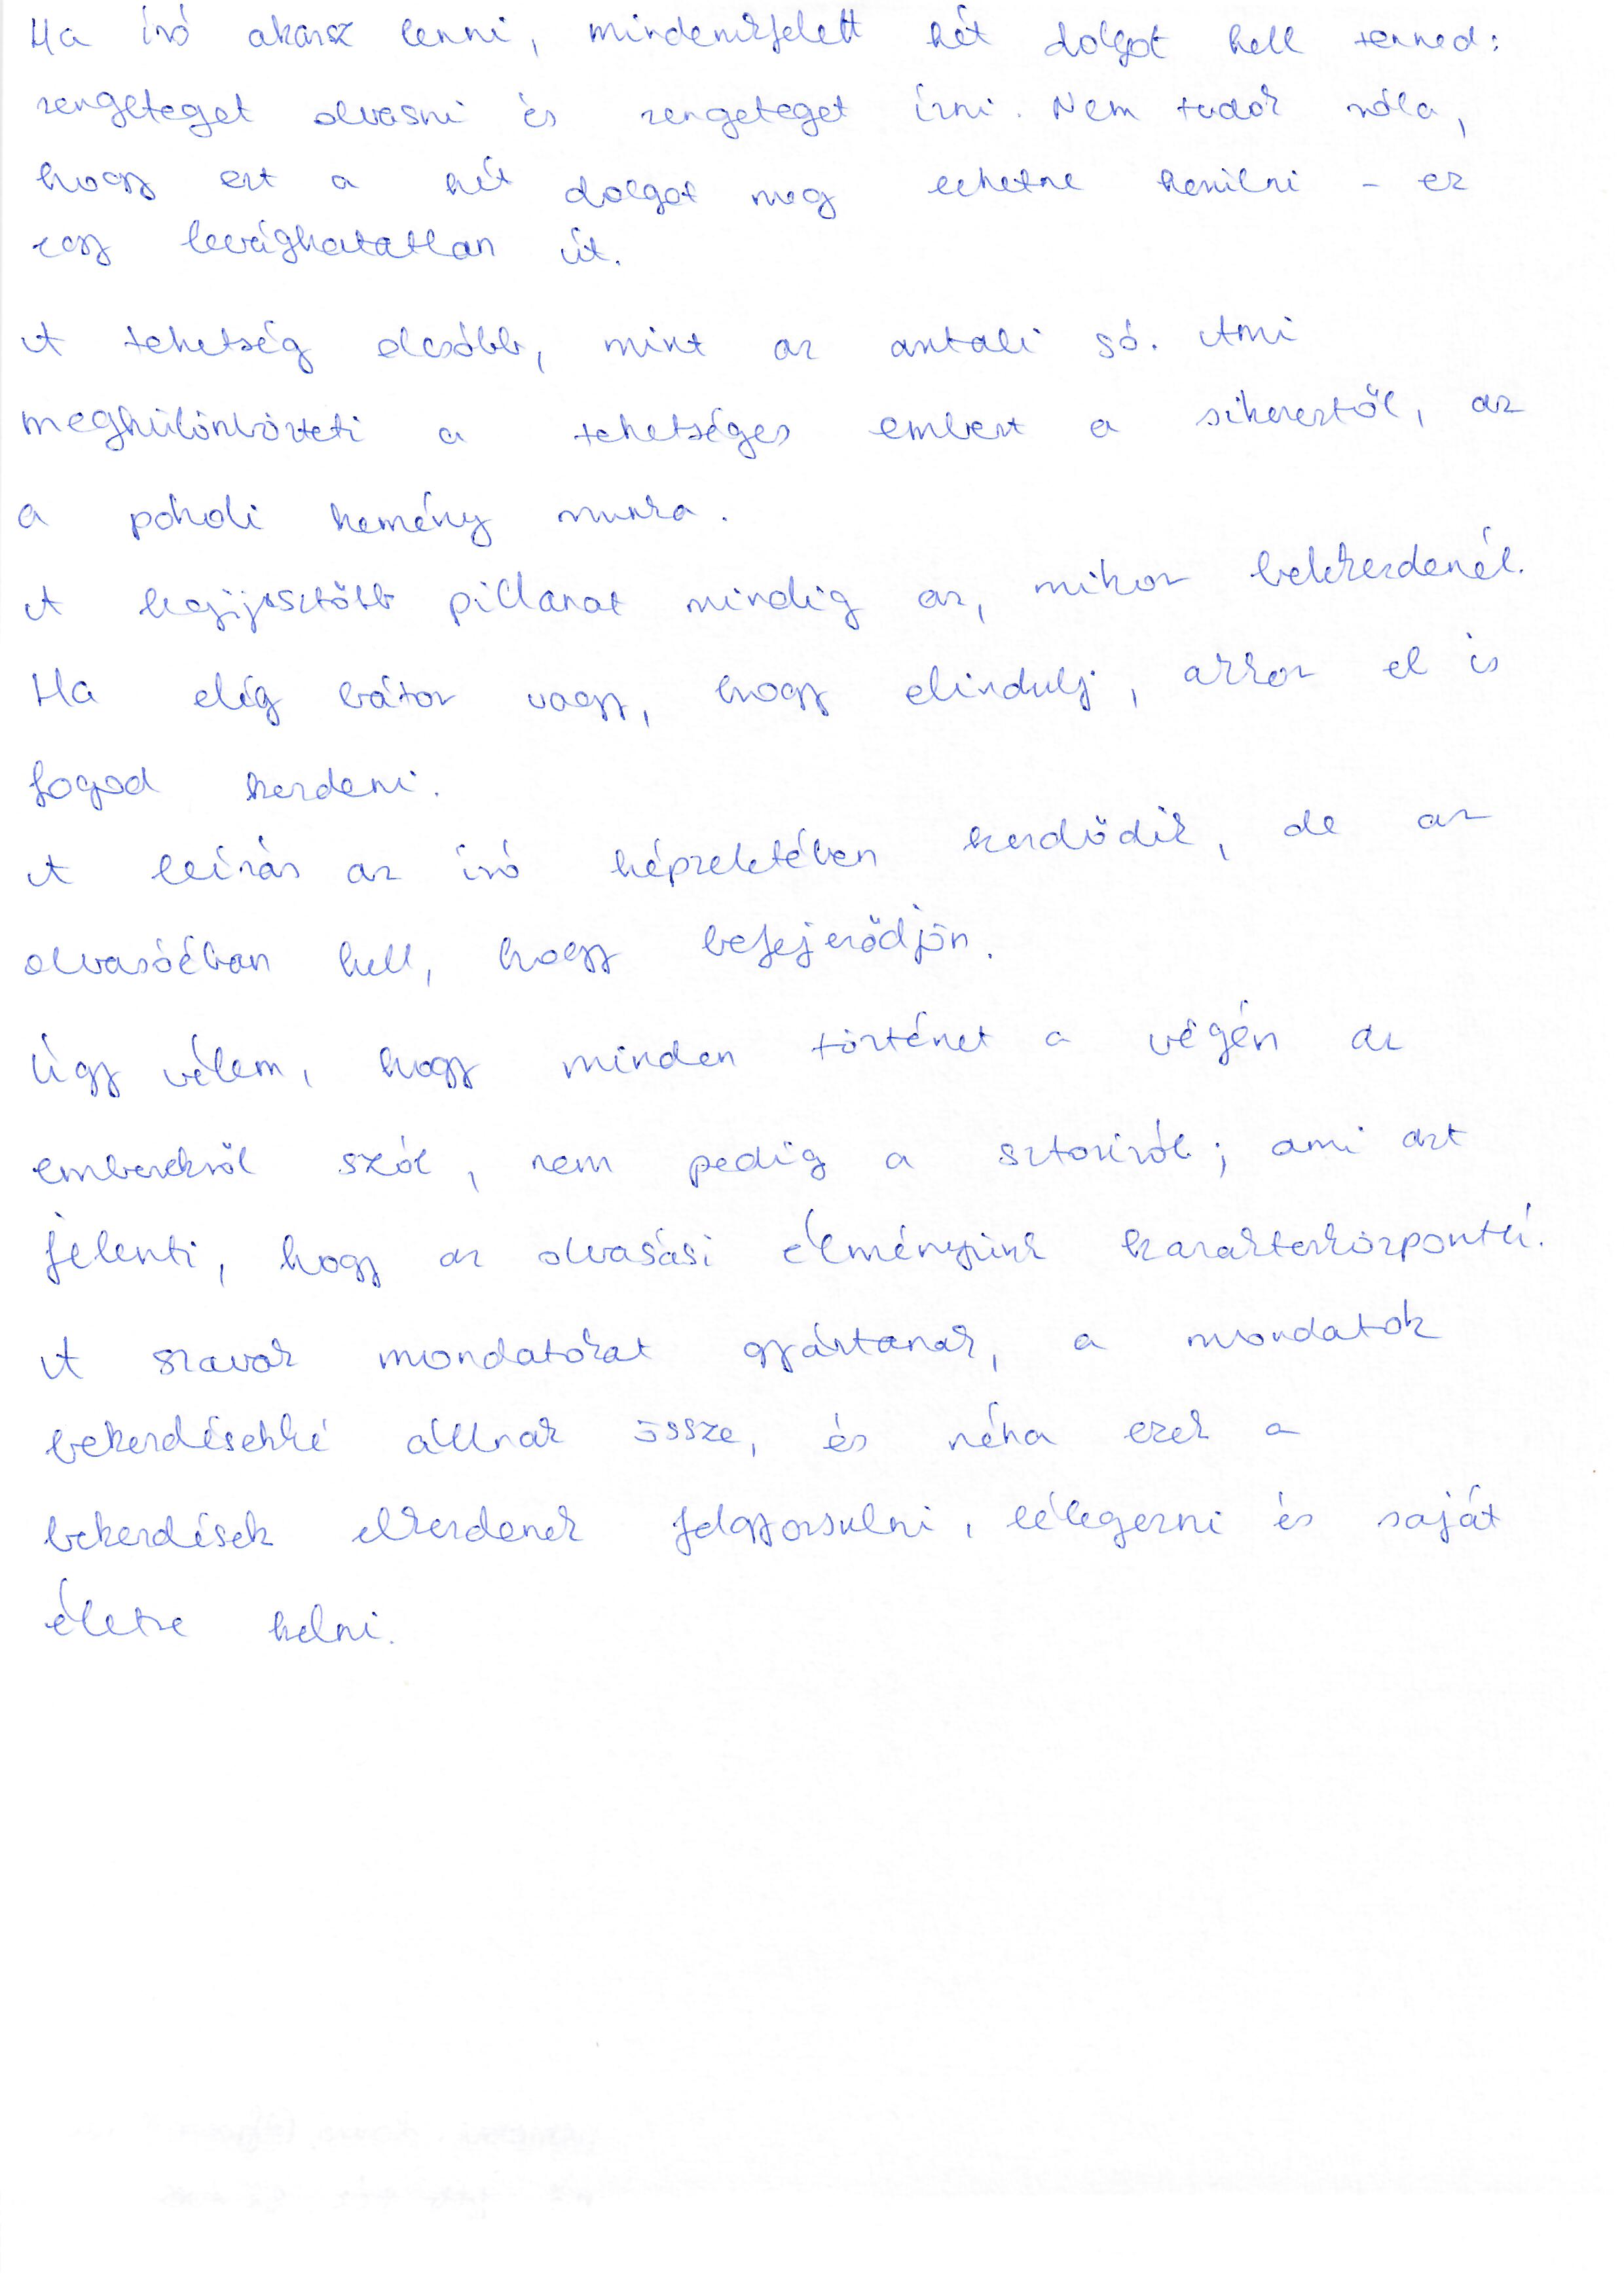 Ha író akarsz lenni, mindenekfelett két dolgot kell tenned:
rengeteget olvasni és rengeteget írni. Nem tudok róla,
hogy ezt a két dolgot meg lehetne kerülni – ez
egy levághatatlan út.
A tehetség olcsóbb, mint az asztali só. Ami
megkülönbözteti a tehetséges embert a sikerestől, az
a pokoli kemény munka.
A legijesztőbb pillanat mindig az, mikor belekezdenél.
Ha elég bátor vagy, hogy elindulj, akkor el is
fogod kezdeni.
A leírás az író képzeletében kezdődik, de az
olvasóéban kell, hogy befejeződjön.
Úgy vélem, hogy minden történet a végén az
emberekről szól, nem pedig a sztoriról; ami azt
jelenti, hogy az olvasási élményünk karakterközpontú.
A szavak mondatokat gyártanak, a mondatok
bekezdésekké állnak össze, és néha ezek a
bekezdések elkezdenek felgyorsulni, lélegezni és saját
életre kelni.